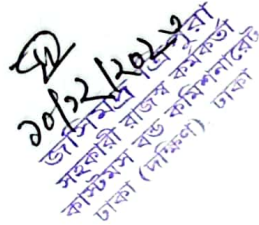 ১০/১২/২০২৩
জসিমপ্র ত্রিপুরা
সহকারী রাজস্ব কর্মকর্তা
কাস্টমস বন্ড কমিশনারেট
ঢাকা (দক্ষিণ), ঢাকা